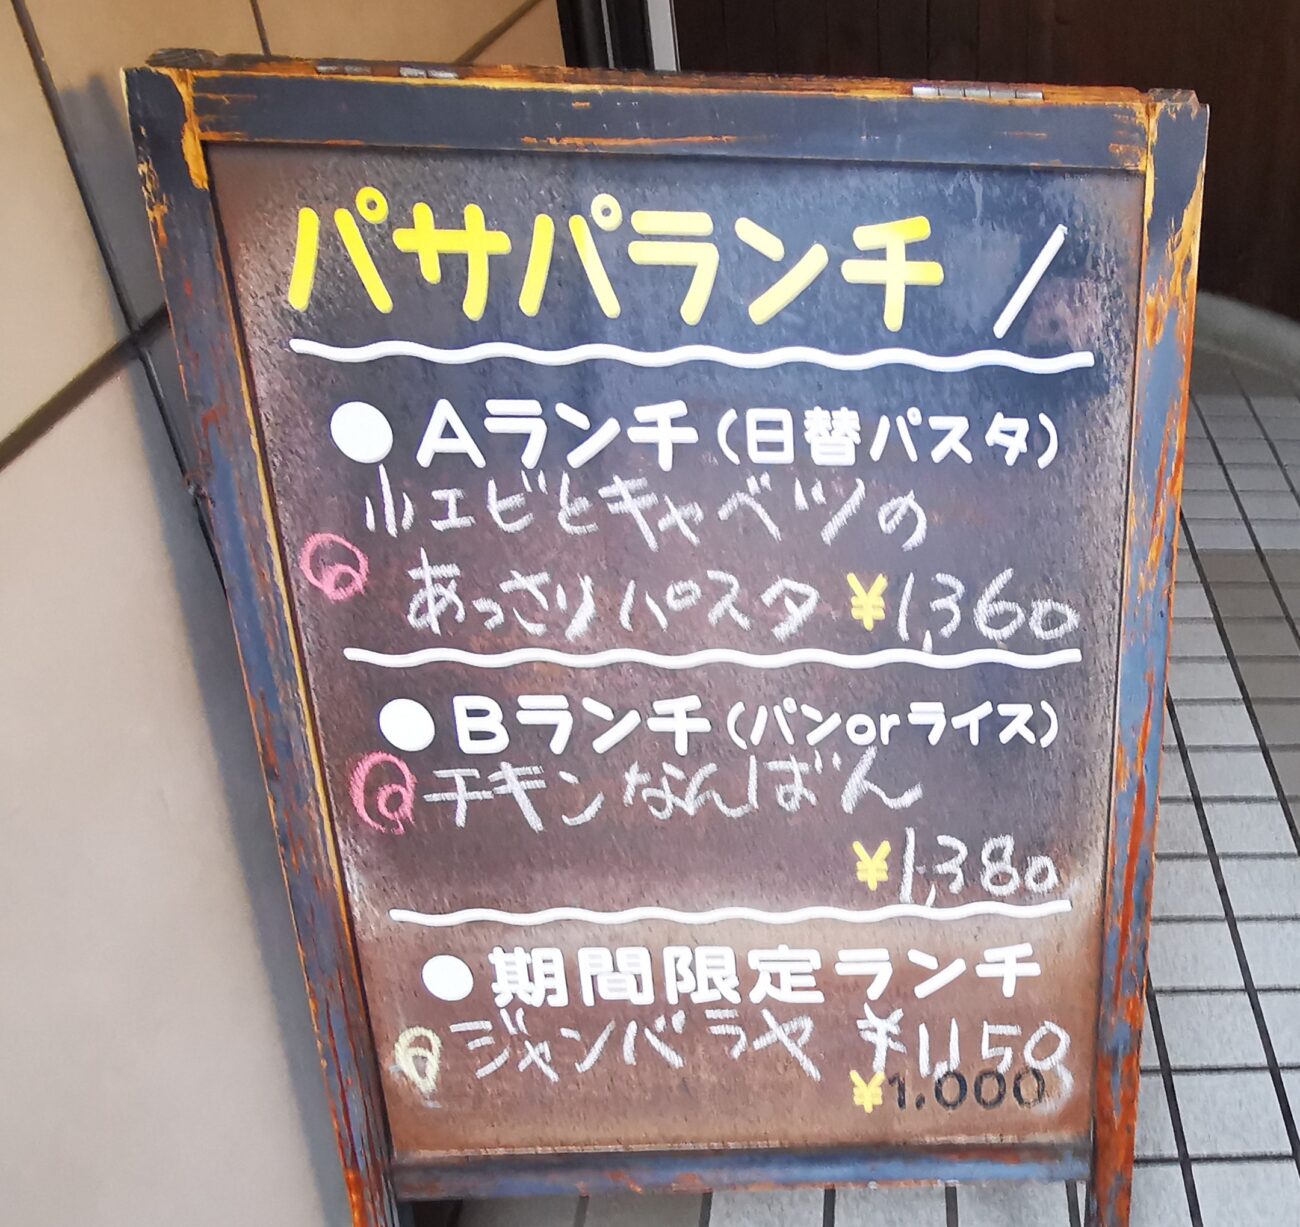 パサパランチ /
●Aランチ(日替パスタ)
小エビとキャベツの
あっさりパスタ ¥1,360
●Bランチ(パンorライス)
チキンなんばん
¥1,380
●期間限定ランチ
ジャンバラヤ ¥1,150
¥1.000